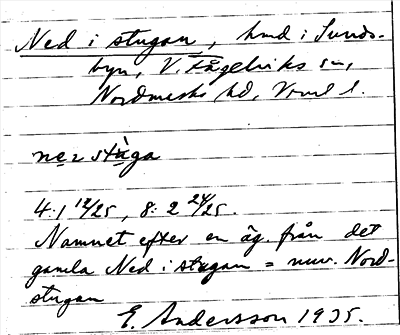 Ned i stugan, hmd i Sunds-
byn, V. Fågelviks sn,
Nordmarks hd, Vrml l.
ne2 stùga
4:1 12/25, 8:2 24/25.
Namnet efter en äg. från det
gamla Ned i stugan = nuv. Nord-
stugan
E. Andersson 1935.